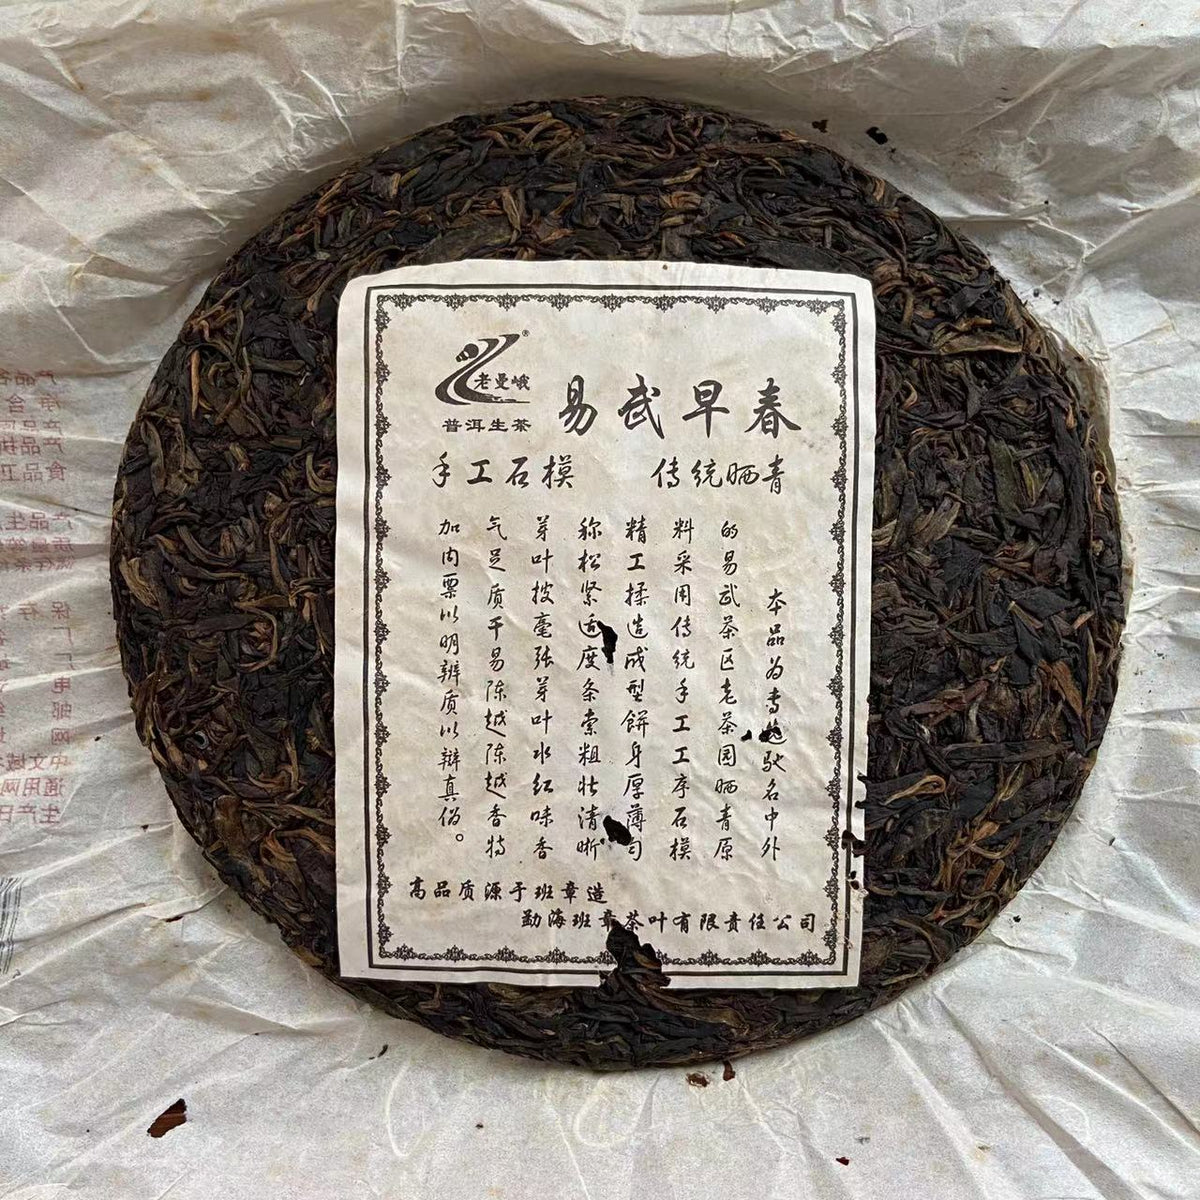 老曼峨®
普洱生茶
易武早春
手工石模 传统晒青
本品为专选驰名中外
的易武茶区老茶园晒青原
料采用传统手工工序石模
精工揉造成型餅身厚薄匀
称松紧适度条索粗壮清晰
芽叶披毫张芽叶水红味香
气足质干易陈越陈越香特
加内票以明辨质以辩真伪。
高品质源于班章造
勐海班章茶叶有限责任公司